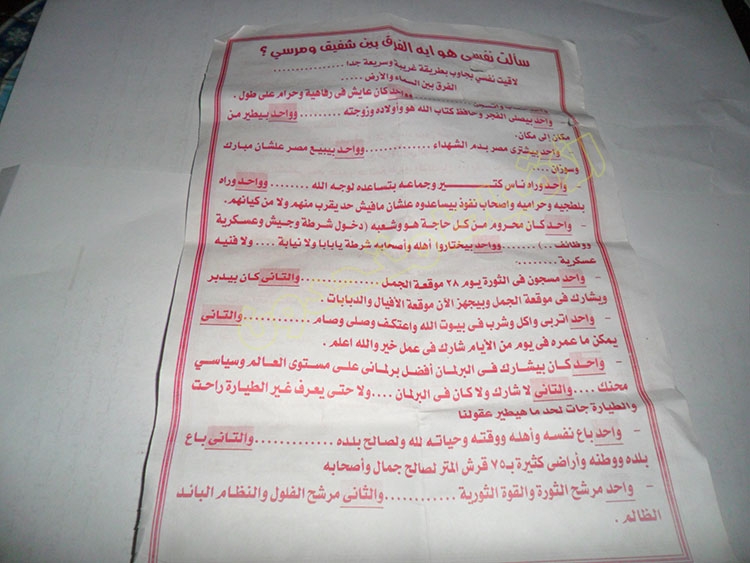 سالت نفسى هو ايه الفرق بين شفيق ومرسي ؟
لاقيت نفسي بجاوب بطريقة غريبة وسريعة جدا
الفرق بين السماء والأرض .....
وواحد كان عايش فى رفاهية وحرام على طول .
- واحد بيصلى الفجر وحافظ كتاب الله هو وأولاده وزوجته ......... وواحد بيطير من
مكان إلى مكان.
- واحد بيشترى مصر بدم الشهداء ................. وواحد بيبيع مصر علشان مبارك
وسوزان ....
- واحد وراه ناس كتـــــــير وجماعه بتساعده لوجه الله ......... وواحد وراه
بلطجيه وحراميه واصحاب نفوذ بيساعدوه علشان مافيش حد يقرب منهم ولا من كيانهم.
- واحد كان محروم من كل حاجة هو وشعبه (دخول شرطة وجيش وعسكرية
ووظائف ..) ......... وواحد بيختاروا أهله وأصحابه شرطة يابابا ولا نيابة .... ولا فتيه
عسكرية .........
- واحد مسجون فى الثورة يوم ٢٨ موقعة الجمل .............. والتانى كان بيدبر
ويشارك فى موقعة الجمل وبيجهز الأن موقعة الأفيال والدبابات .
- واحد اتربى واكل وشرب فى بيوت الله واعتكف وصلى وصام ......... والتانى
يمكن ما عمره فى يوم من الأيام شارك فى عمل خير والله اعلم .
- واحد كان بيشارك فى البرلمان أفضل برلمانى على مستوى العالم وسياسي
محنك .... والتانى لا شارك ولا كان فى البرلمان .... ولا حتى يعرف غير الطيارة راحت
والطيارة جات لحد ما هيطير عقولنا
- واحد باع نفسه وأهله ووقته وحياته لله ولصالح بلده ............. والتانى باع
بلده ووطنه وأراضى كثيرة بـ٧٥ قرش المتر لصالح جمال وأصحابه
- واحد مرشح الثورة والقوة الثورية ............ والثانى مرشح الفلول والنظام البائد
الظالم .